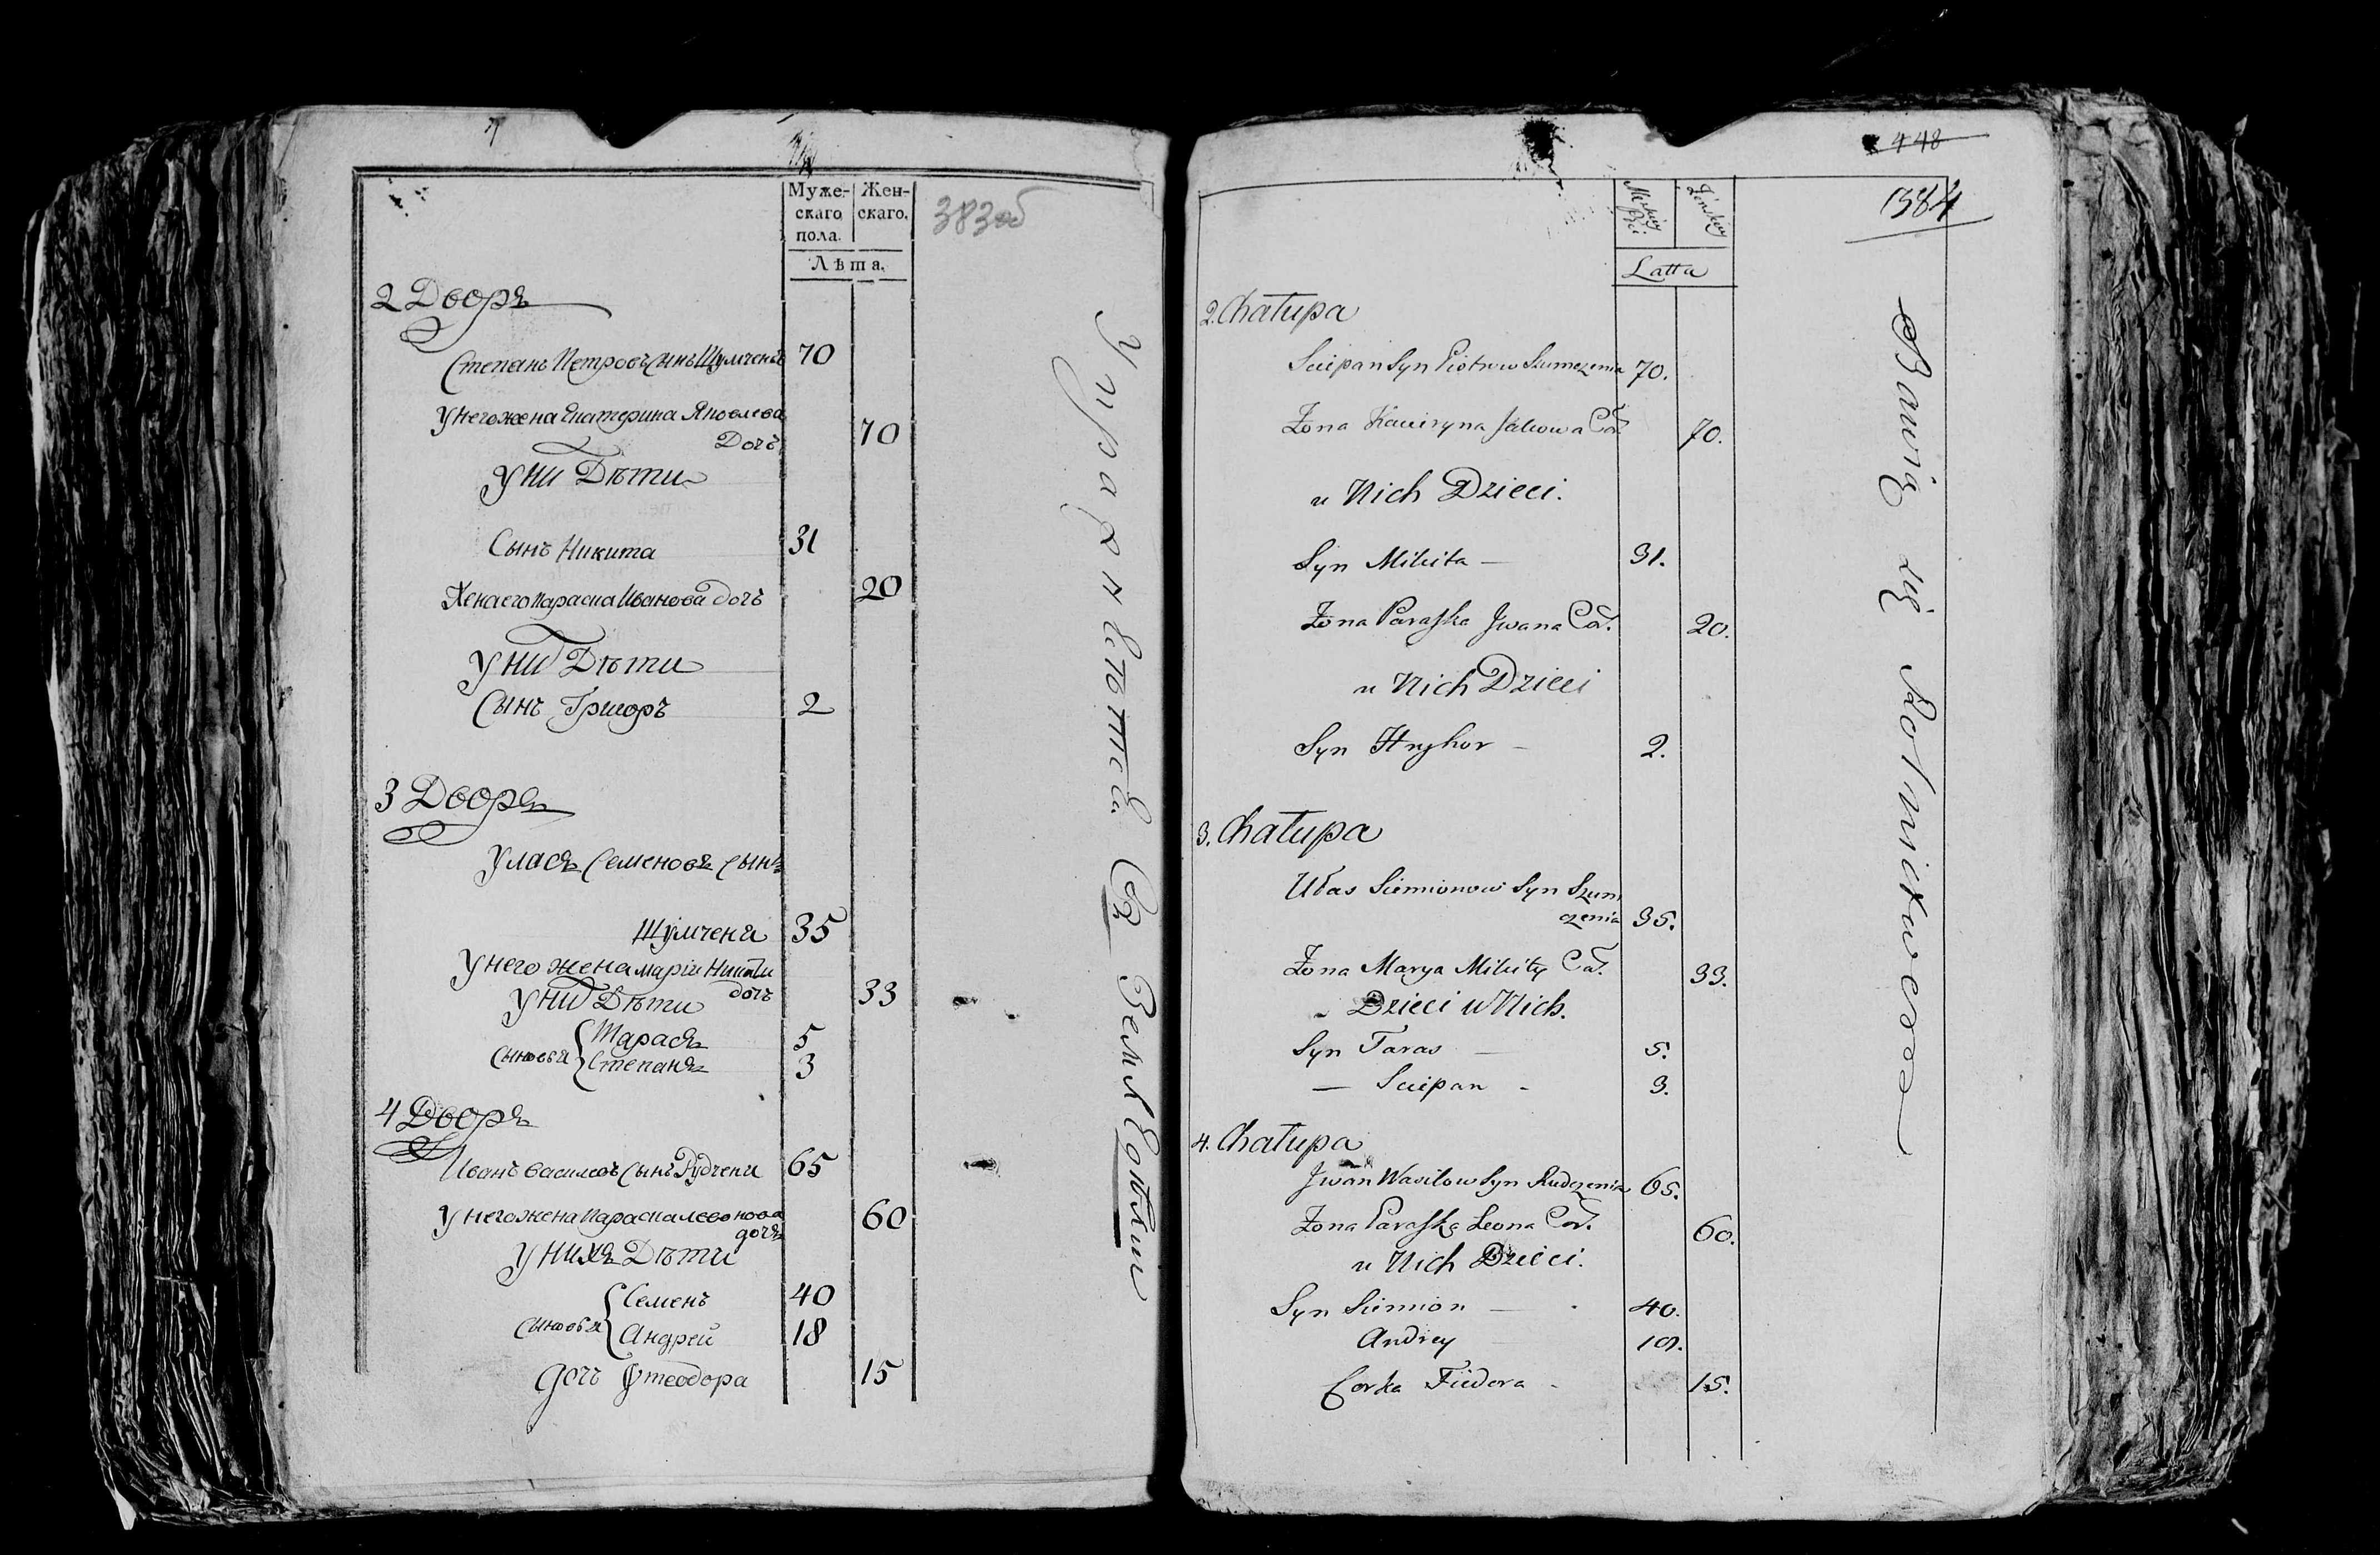 Муже-
скаго
пола.
Жен-
скаго.
Лѣта.
383об
2 Дворъ
Степанъ Петровъ сынъ Шумченя 70
У него жена Екатерина Яковлева
дочь 70
У ни Дѣти
Сынъ Никита 31
Жена его Параска Иванова дочь 20
У ни Дѣти
Сынъ Григоръ 2
3 Дворъ
Уласъ Семеновъ сынъ
Шумченя 35
У него жена Марія Никиты
дочь 33
У ни Дѣти
Сыновья { Тарасъ 5
Степанъ 3
4 Дворъ
Иванъ Василевъ сынъ Рудченя 65
У него жена Параска Левонова
дочь 60
У нихъ Дѣти
Сыновья { Семенъ 40
Андрей 18
дочь Фтеодора 15
Упражняется въ Земля
448
384
Męskiey
Płci
Żenskiey
Latta
2. Chałupa
Sciepan Syn Piotrow Szumczenia 70.
Żona Kaciryna Jakowa Cór. 70.
u Nich Dzieci.
Syn Mikita — 31.
Żona Paraska Jwana Cór. 20.
u Nich Dzieci
Syn Hryhor — 2.
3. Chałupa
Ułas Siemionow Syn Szum
czenia 35.
Żona Marya Mikity Cór. 33.
Dzieci u Nich.
Syn Taras — 5.
— Sciepan - 3.
4. Chałupa
Jwan Wasilow Syn Rudczenia 65.
Żona Paraska Leona Cór. 60.
u Nich Dzieci.
Syn Siemion — 40.
Andrey 18.
Corka Fiedora - 15.
Bawią się Rolnictwem